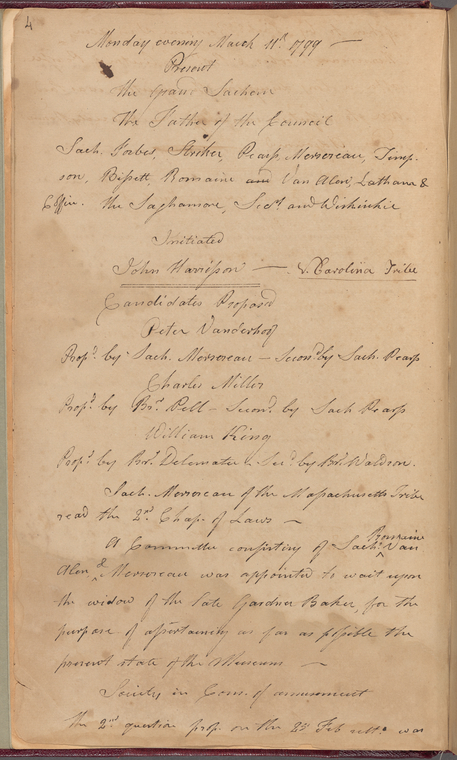 4
Monday evening March 11th 1799 —
Present
the Grand Sachem
The Father of the Council
Sach. Forbes, Striker, Pearss, Mersereau, Timp-
son, Bissett, Romaine and Van Alen, Lathann &
Coffin. the Saghamore, Secy and Wiskinkie
Initiated
John Harrisson — Carolina Tribe
Candidates Proposed
Peter Vanderhoof
Propd by Sach. Mersereau — Second by Sach. Pearss
Charles Miller
Propd by Br. Pell — Second by Sach Pearss
William King
Propd by Br. Delamater — Secd by Br. Waldron.
Sach. Mersereau of the Massachusetts Tribe
read the 2nd Chap. of Laws —
A Committee consisting of Sachs Romaine Van
Alen & Mersereau was appointed to wait upon
the widow of the late Gardner Baker, for the
purpose of assertaining as far as possible the
present state of the Museum —
Society in Cons. of amusement
the 2nd question prop. on the 25 Feb ulto was